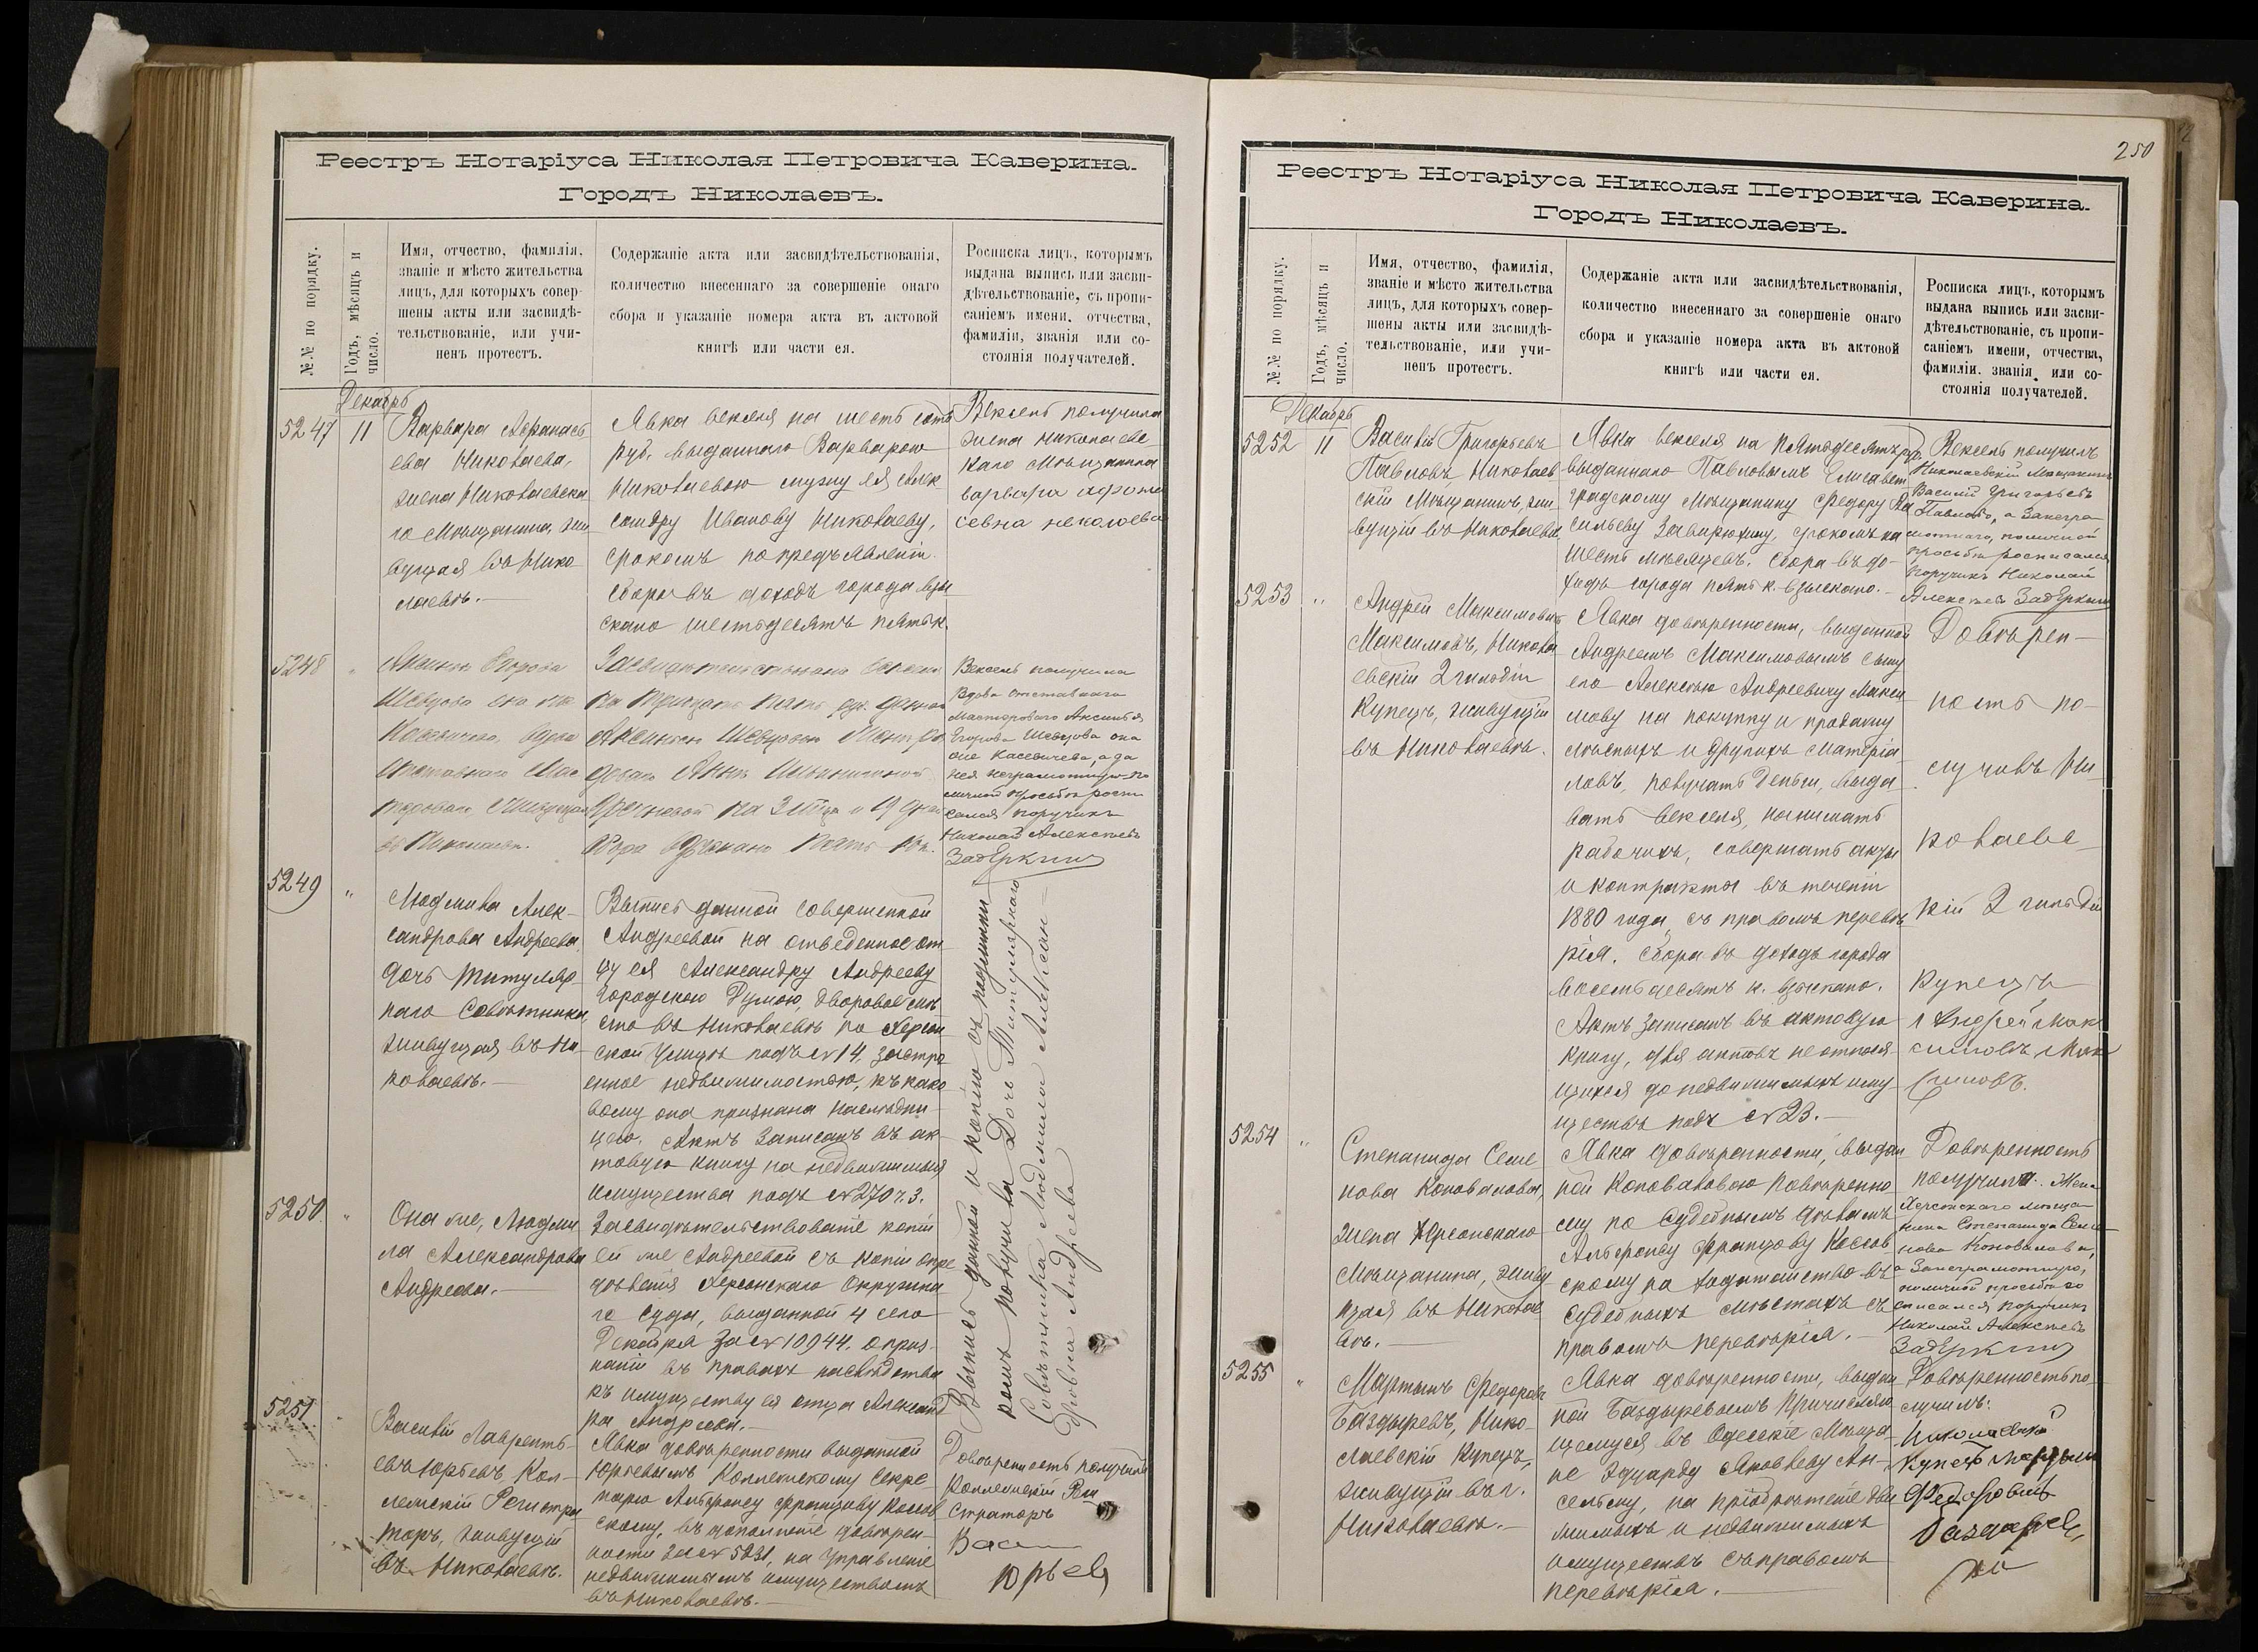 Реестръ Нотаріуса Николая Петровича Каверина.
Городъ Николаевъ.
№№ по порядку.
Годъ, мѣсяцъ и
число.
Имя, отчество, фамилія,
званіе и мѣсто жительства
лицъ, для которыхъ совер-
шены акты или засвидѣ-
тельствованіе, или учи-
ненъ протестъ.
Содержаніе акта или засвидѣтельствованія,
количество внесеннаго за совершеніе онаго
сбора и указаніе номера акта въ актовой
книгѣ или части ея.
Росписка лицъ, которымъ
выдана выпись или засви-
дѣтельствованіе, съ пропи-
саніемъ имени, отчества,
фамиліи, званія или со-
стоянія получателей.
Декабрь
5247
11
Варвара Афанась
ева Николаева,
жена Николаевска
го Мѣщанина, жи
вущая въ Нико
лаевѣ.
Явка векселя на шесть сотъ
руб. выданнаго Варварою
Николаевою мужу ея Алек
сандру Иванову Николаеву,
срокомъ по предъявленіи.
Сбора въ доходъ города взы
скано шестьдесятъ пять к.
Вексель получила
жена николаевс
каго Мьщанина
варвара афона
севна неколаева
5248
"
Шевцова она же
Касевичева, вдова
отставнаго Мас
терового
въ Николаевѣ.
на тридцать пять руб.
Аксиньею Шевцовою
Сбора взыскано пять коп.
Вексель получила
Вдова отставнаго
Мастероваго Аксинья
Егорова Шевцова она
же Касевичева, а за
нея неграмотную по
личной просьбѣ роспи
сался поручикъ
Николай Алексѣевъ
Задёркинъ
5249
"
Людмила Алек-
сандрова Андреева,
дочь Титуляр-
наго Совѣтника,
живущая въ Ни
колаевѣ.
Выпись данной совершенной
Андреевой на отведенное от
цу ея Александру Андрееву
Городскою Думою, дворовое мѣ
сто въ Николаевѣ по Херсон
ской улицѣ подъ № 14, застро
енное недвижимостью, къ како
вому она признана наслѣдни-
цею. Актъ записанъ въ ак-
товую книгу на недвижимыя
имущества подъ № 270 ч. 3.
Выпись данной и копію съ
копіи получила Дочь Титулярнаго
Совѣтника Людмила Алексан-
дровна Андреева
5250
"
Она же, Людми
ла Александрова
Андреева.
Засвидѣтельствованіе копіи
ей же Андреевой съ копіи опре
дѣленія Херсонскаго Окружна
го Суда, выданной 4 сего
Декабря за № 10944. о приз-
наніи въ правахъ наслѣдства
къ имуществу ея отца Александ
ра Андреева.
5251
Василій Лавренть-
евъ Юрьевъ, Кол-
лежскій Регистра
торъ, живущій
въ Николаевѣ.
Явка довѣренности выданной
Юрьевымъ Коллежскому Секре
тарю Альфонсу Францову Коссов
скому, въ дополненіе довѣрен-
ности за № 5231, на управленіе
недвижимымъ имуществомъ
въ Николаевѣ.
Довѣренность получилъ
Коллежскій Реги
страторъ
Юрьевъ
250
Реестръ Нотаріуса Николая Петровича Каверина.
Городъ Николаевъ.
№№ по порядку.
Годъ, мѣсяцъ и
число.
Имя, отчество, фамилія,
званіе и мѣсто жительства
лицъ, для которыхъ совер-
шены акты или засвидѣ-
тельствованіе, или учи-
ненъ протестъ.
Содержаніе акта или засвидѣтельствованія,
количество внесеннаго за совершеніе онаго
сбора и указаніе номера акта въ актовой
книгѣ или части ея.
Росписка лицъ, которымъ
выдана выпись или засви-
дѣтельствованіе, съ пропи-
саніемъ имени, отчества,
фамиліи, званія, или со-
стоянія получателей.
Декабрь
5252
11
Василій Григорьевъ
Павловъ, Николаев
скій Мѣщанинъ, жи
вущій въ Николаевѣ,
Явка векселя на пятьдесятъ ру.
выданнаго Павловымъ Елисавет
градскому Мѣщанину Федору Ва
сильеву Завирюхину, срокомъ на
шесть мѣсяцевъ. Сбора въ до-
ходъ города пять к. взыскано.
Вексель получилъ
Николаевскій Мещанинъ
Василій Григорьевъ
Павловъ, а за негра-
мотнаго, по личной
просьбѣ росписался
поручикъ Николай
Алексѣевъ Задёркинъ
5253
"
Андрей Максимовичъ
Максимовъ, Никола
евскій 2 гильдіи
Купецъ, живущій
въ Николаевѣ.
Явка довѣренности, выданной
Андреемъ Максимовымъ сыну
его Алексѣю Андреевичу Макси
мову на покупку и продажу
лѣсныхъ и другихъ матеріа
ловъ, получать деньги, выда
вать векселя, нанимать
рабочихъ, совершать акты
и контракты въ теченіи
1880 года, съ правомъ передовѣ
рія. Сбора въ доходъ города
восемьдесятъ к. взыскано.
Актъ записанъ въ актовую
книгу, для актовъ не относя-
щихся до недвижимыхъ иму-
ществъ подъ № 23.
Довѣрен-
ность по-
лучивъ Ни
колаевс
кій 2 гильдіи
купецъ
Андрей Мак
симовъ Мак
симовъ.
5254
"
Степанида Семе
нова Коновалова,
жена Херсонскаго
Мѣщанина, живу
щая въ Николае
вѣ.
Явка довѣренности, выдан
ной Коноваловою повѣренно
му по судебнымъ дѣламъ
Альфонсу Францову Коссов
скому на ходатайство въ
судебныхъ мѣстахъ съ
правомъ передовѣрія.
Довѣренность
получила: Жена
Херсонскаго мѣща-
нина Степанида Семе-
нова Коновалова,
а за неграмотную,
по личной просьбѣ ро
списался поручикъ
Николай Алексѣевъ
Задёркинъ
5255
"
Мартынъ Федоровъ
Баздыревъ, Нико-
лаевскій Купецъ,
живущій въ г.
Николаевѣ.
Явка довѣренности, выдан
ной Баздыревымъ причисляю
щемуся въ Одесскіе Мѣща-
не Эдуарду Яковлеву Ан-
сельму, на пріобрѣтеніе дви
жимыхъ и недвижимыхъ
имуществъ съ правомъ
передовѣрія.
Довѣренность по-
лучилъ:
Николаевской
Купецъ Мартын
Федоровъ
Баздырев